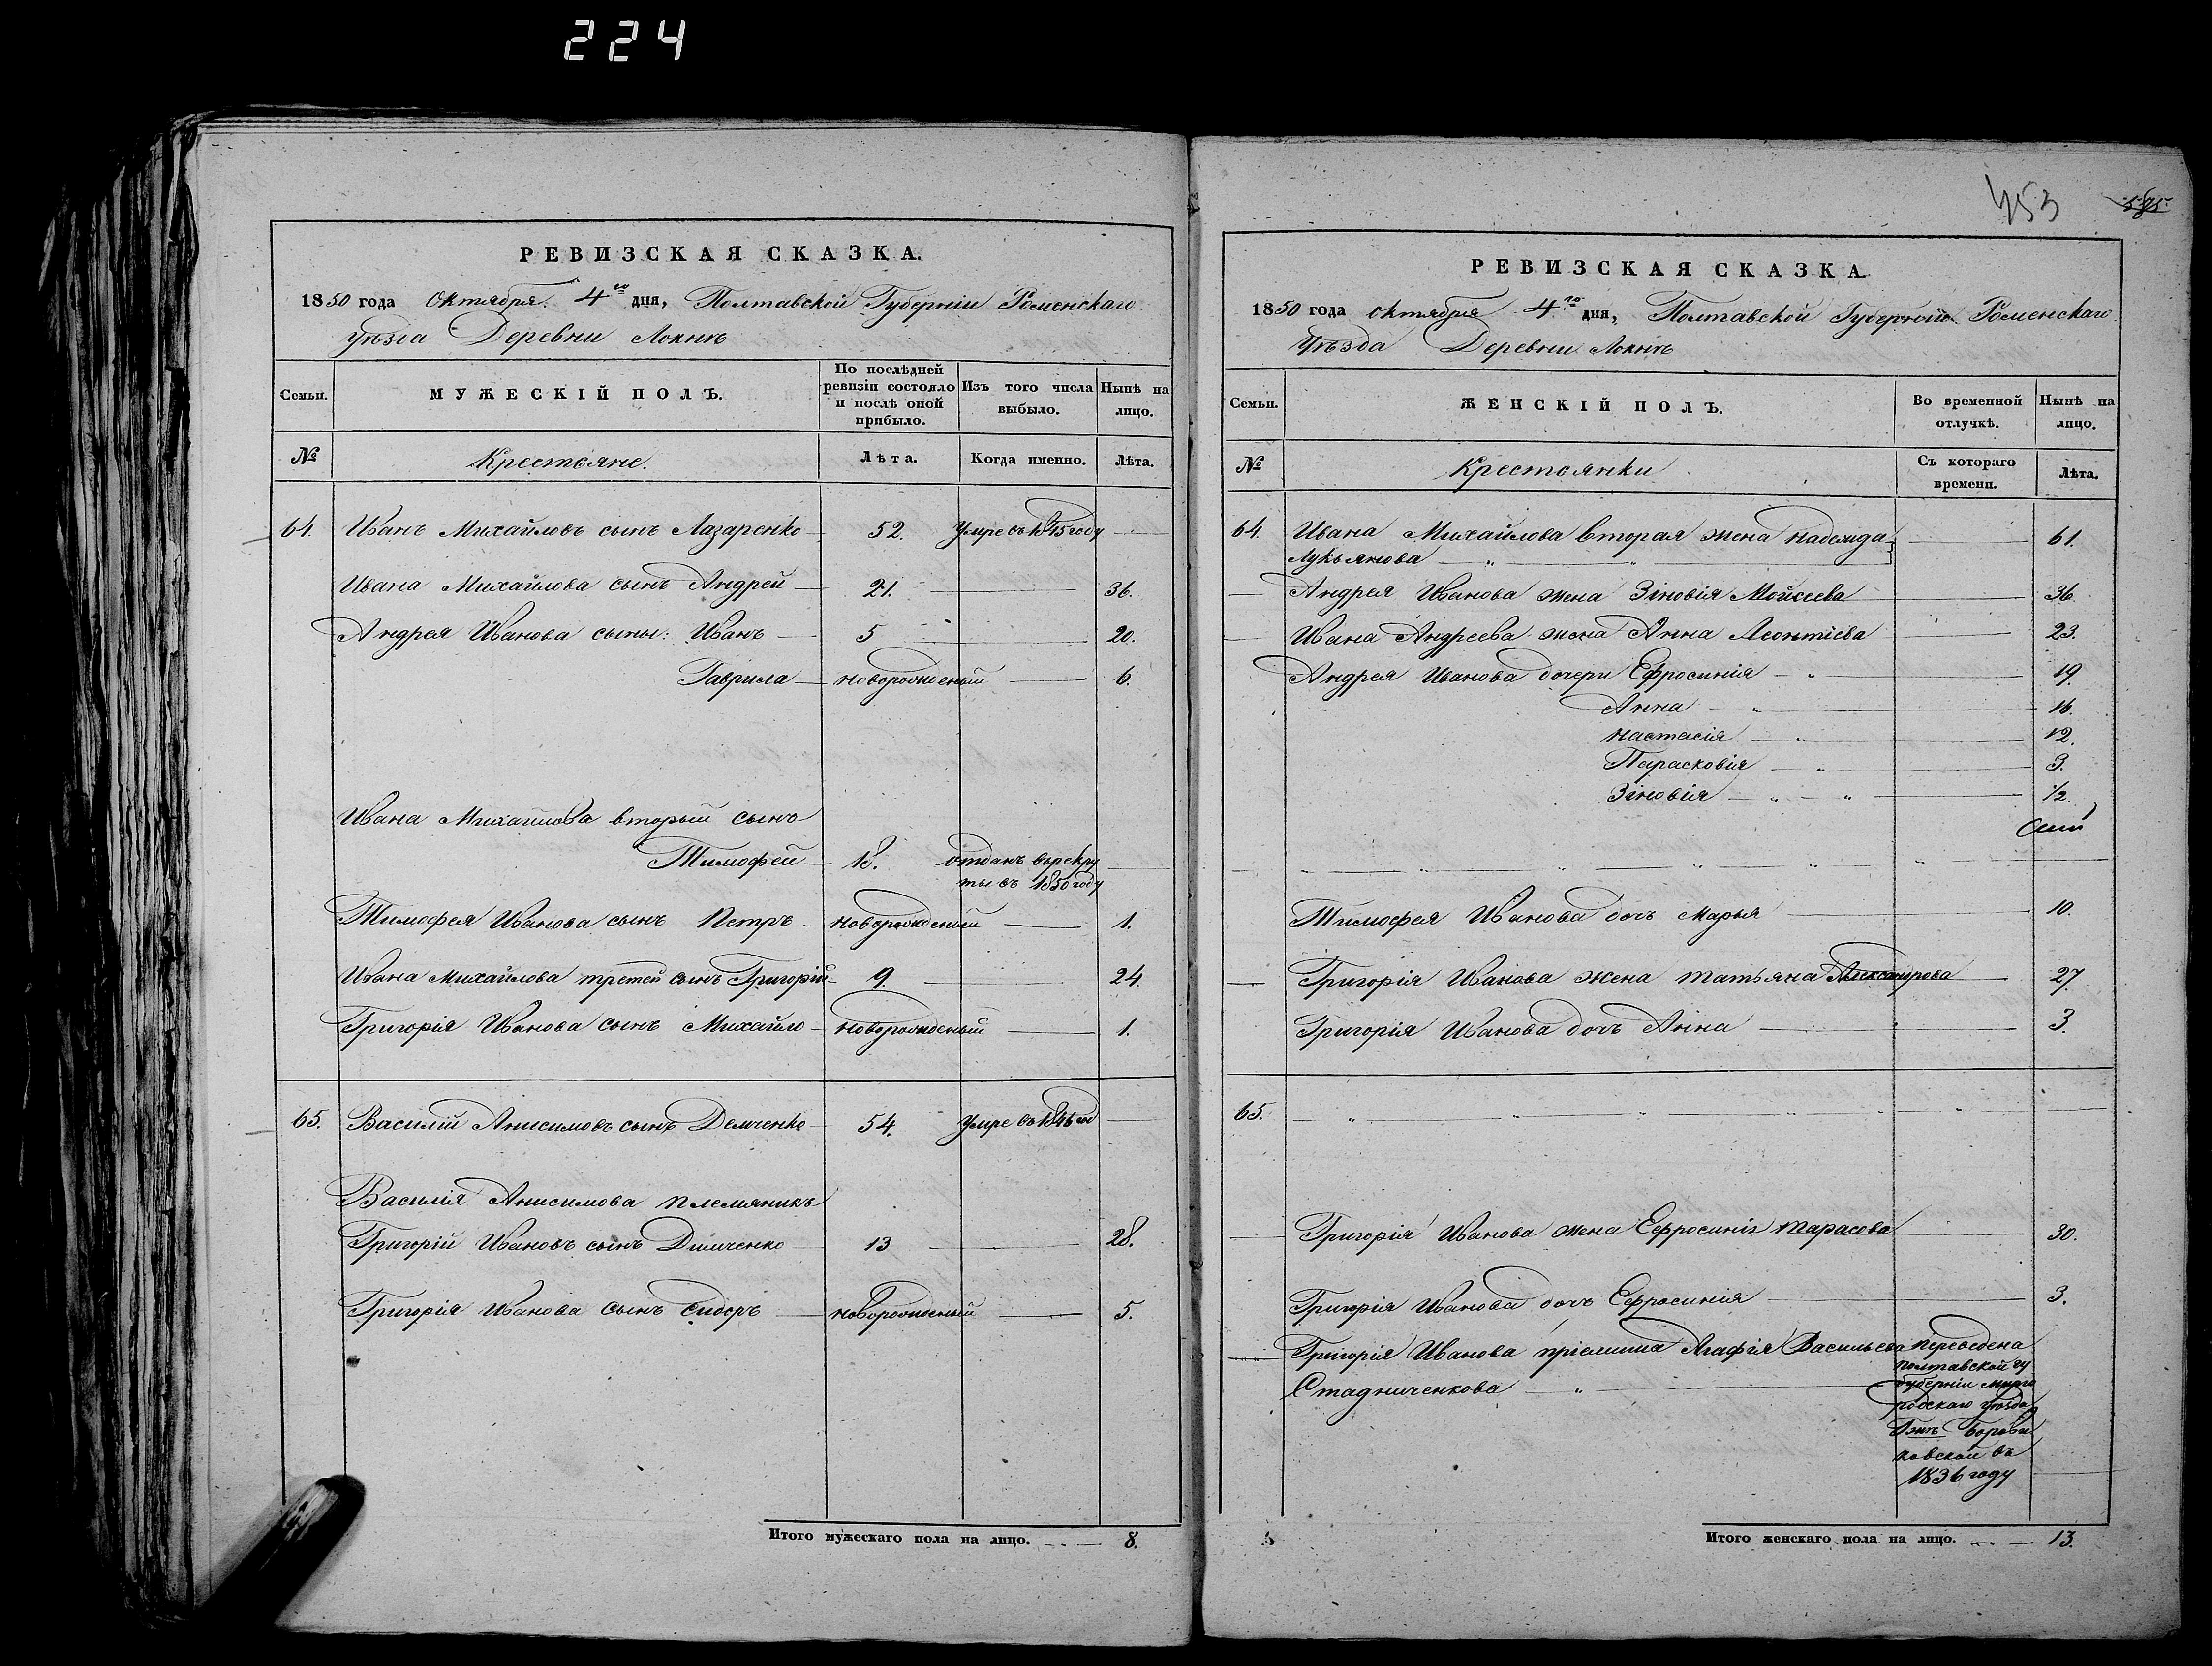 224
РЕВИЗСКАЯ СКАЗКА.
1850 года Октября 4го дня, Полтавской Губерніи Роменскаго
уѣзда Деревни Локнѣ
Семьи.
МУЖЕСКІЙ ПОЛЪ.
По послѣдней ревизіи состояло и послѣ оной прибыло.
Изъ того числа выбыло.
Нынѣ на лицо.
№
Крестьяне.
Лѣта.
Когда именно.
Лѣта.
64. Иванъ Михайловъ сынъ Лазаренко 52. Умре въ 1845 году
Ивана Михайлова сынъ Андрей 21. 36.
Андрея Иванова сыны: Иванъ 5 20.
Гаврила новорожденый 6.
Ивана Михайлова вторый сынъ
Тимофей 18. отданъ въ рекру
ты въ 1850 году
Тимофея Иванова сынъ Петръ новорожденый 1.
Ивана Михайлова третей сынъ Григорій 9. 24.
Григорія Иванова сынъ Михайло новорожденый 1.
65. Василій Анисимовъ сынъ Демченко 54. Умре въ 1846 год
Василія Анисимова племяникъ
Григорій Ивановъ сынъ Димченко 13 28.
Григорія Иванова сынъ Сидоръ новорожденый 5.
Итого мужескаго пола на лицо. 8.
453
585
РЕВИЗСКАЯ СКАЗКА
1850 года октября 4го дня, Полтавской Губерніи Роменскаго
Уѣзда Деревни Локнѣ
Семьи.
ЖЕНСКІЙ ПОЛЪ.
Во временной отлучкѣ.
Нынѣ на лицо.
№
Крестоянки
Съ котораго времени.
Лѣта.
64. Ивана Михайлова вторая жена надежда 61.
Лукьянова
Андрея Иванова жена Зіновія Мойсеева 36
Ивана Андреева жена Анна Леонтіева 23.
Андрея Иванова дочери Ефросинія 19.
Анна 16.
Настасія 12.
Парасковія 3.
Зіновія 1/2.
Тимофея Иванова дочь Марья 10.
Григорія Иванова жена татьяна Александрова 27
Григорія Иванова дочь Анна 3.
65.
Григорія Иванова жена Ефросинія тарасова 30.
Григорія Иванова дочь Ефросинія 3.
Григорія Иванова пріемиша Агафія Васильева переведена
полтавской гу
Стадниченкова берніи мирго
родскаго уѣзда
Борови
ковской въ
1836 году
Итого женскаго пола на лицо. 13.